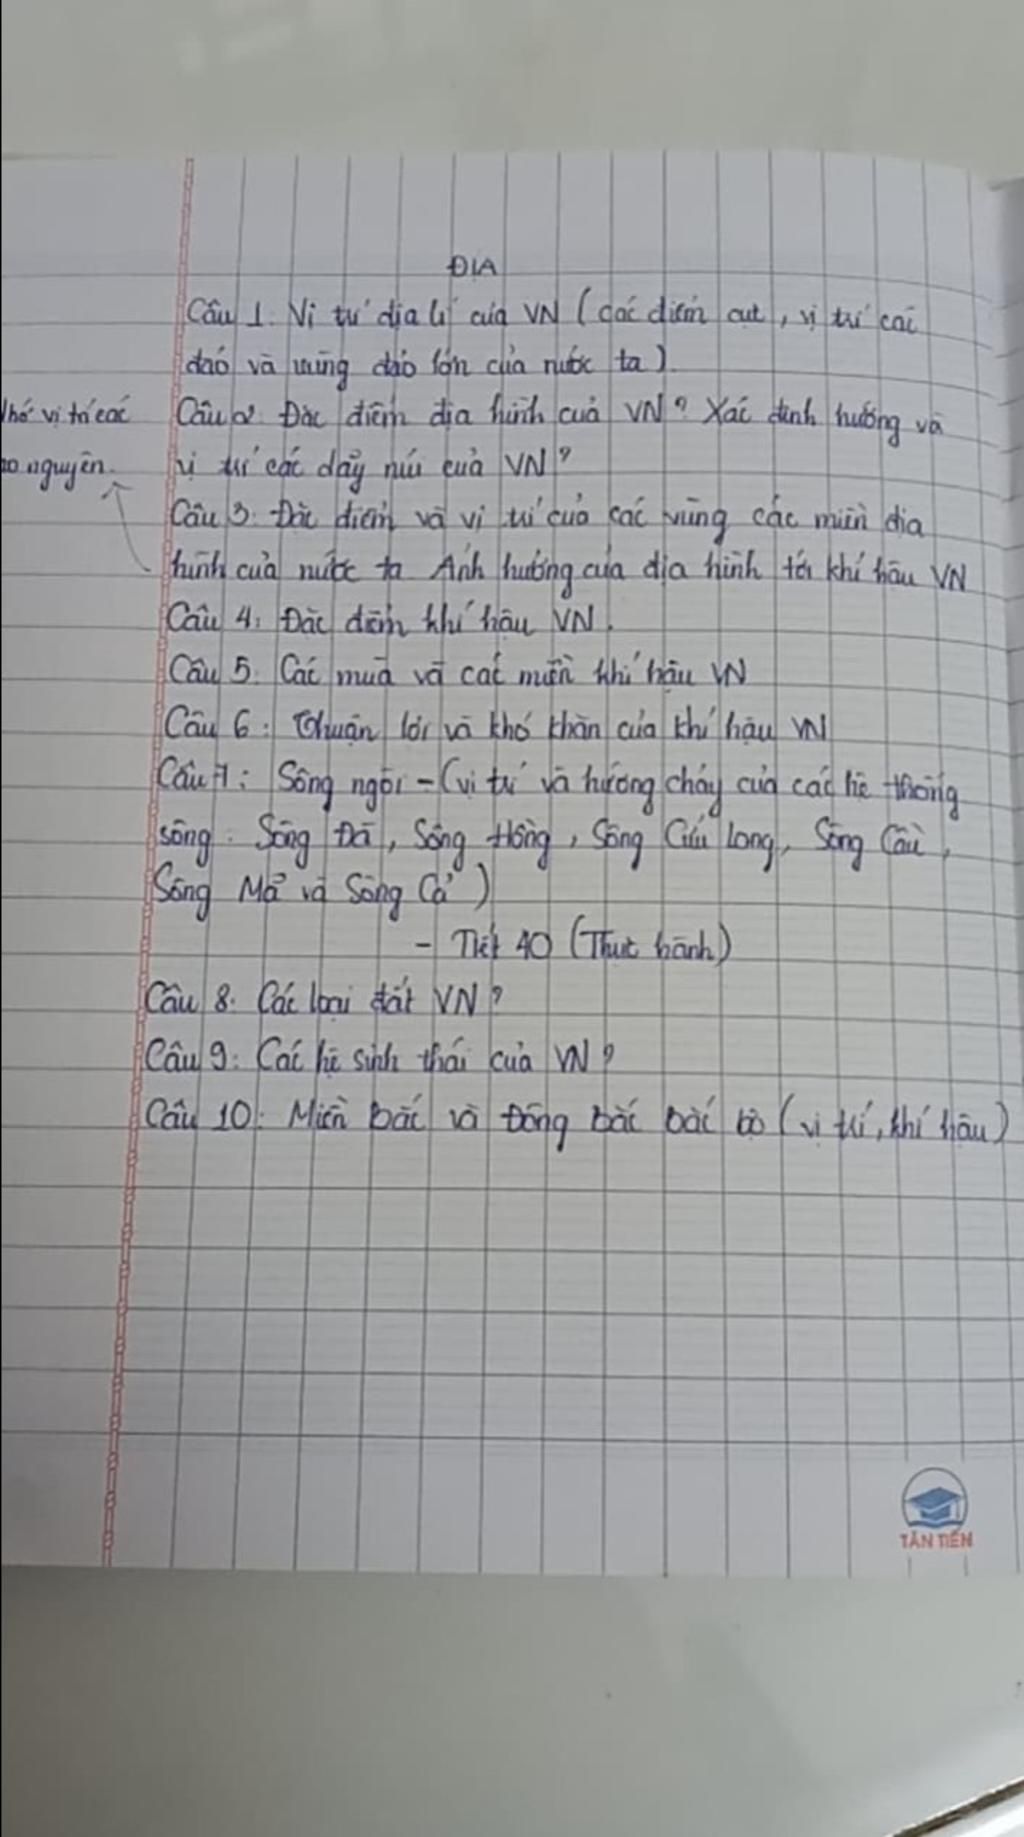 ĐỊA
Câu 1: Vị trí địa lí của VN (các điểm cực, vị trí các
đảo và vùng đảo lớn của nước ta).
Nhớ vị trí các
Câu 2: Đặc điểm địa hình của VN? Xác định hướng và
nguyên.
vị trí các dãy núi của VN?
Câu 3: Đặc điểm và vị trí của các vùng các miền địa
hình của nước ta Ảnh hưởng của địa hình tới khí hậu VN
Câu 4: Đặc điểm khí hậu VN.
Câu 5: Các mùa và các miền khí hậu VN
Câu 6: Thuận lợi và khó khăn của khí hậu VN
Câu 7: Sông ngòi - (vị trí và hướng chảy của các hệ thống
sông: Sông Đà, Sông Hồng, Sông Cửu Long, Sông Cầu,
Sông Mã và Sông Cả)
- Tiết 40 (Thực hành)
Câu 8: Các loại đất VN?
Câu 9: Các hệ sinh thái của VN?
Câu 10: Miền bắc và Đông bắc bắc bộ (vị trí, khí hậu)
TÂN TIẾN